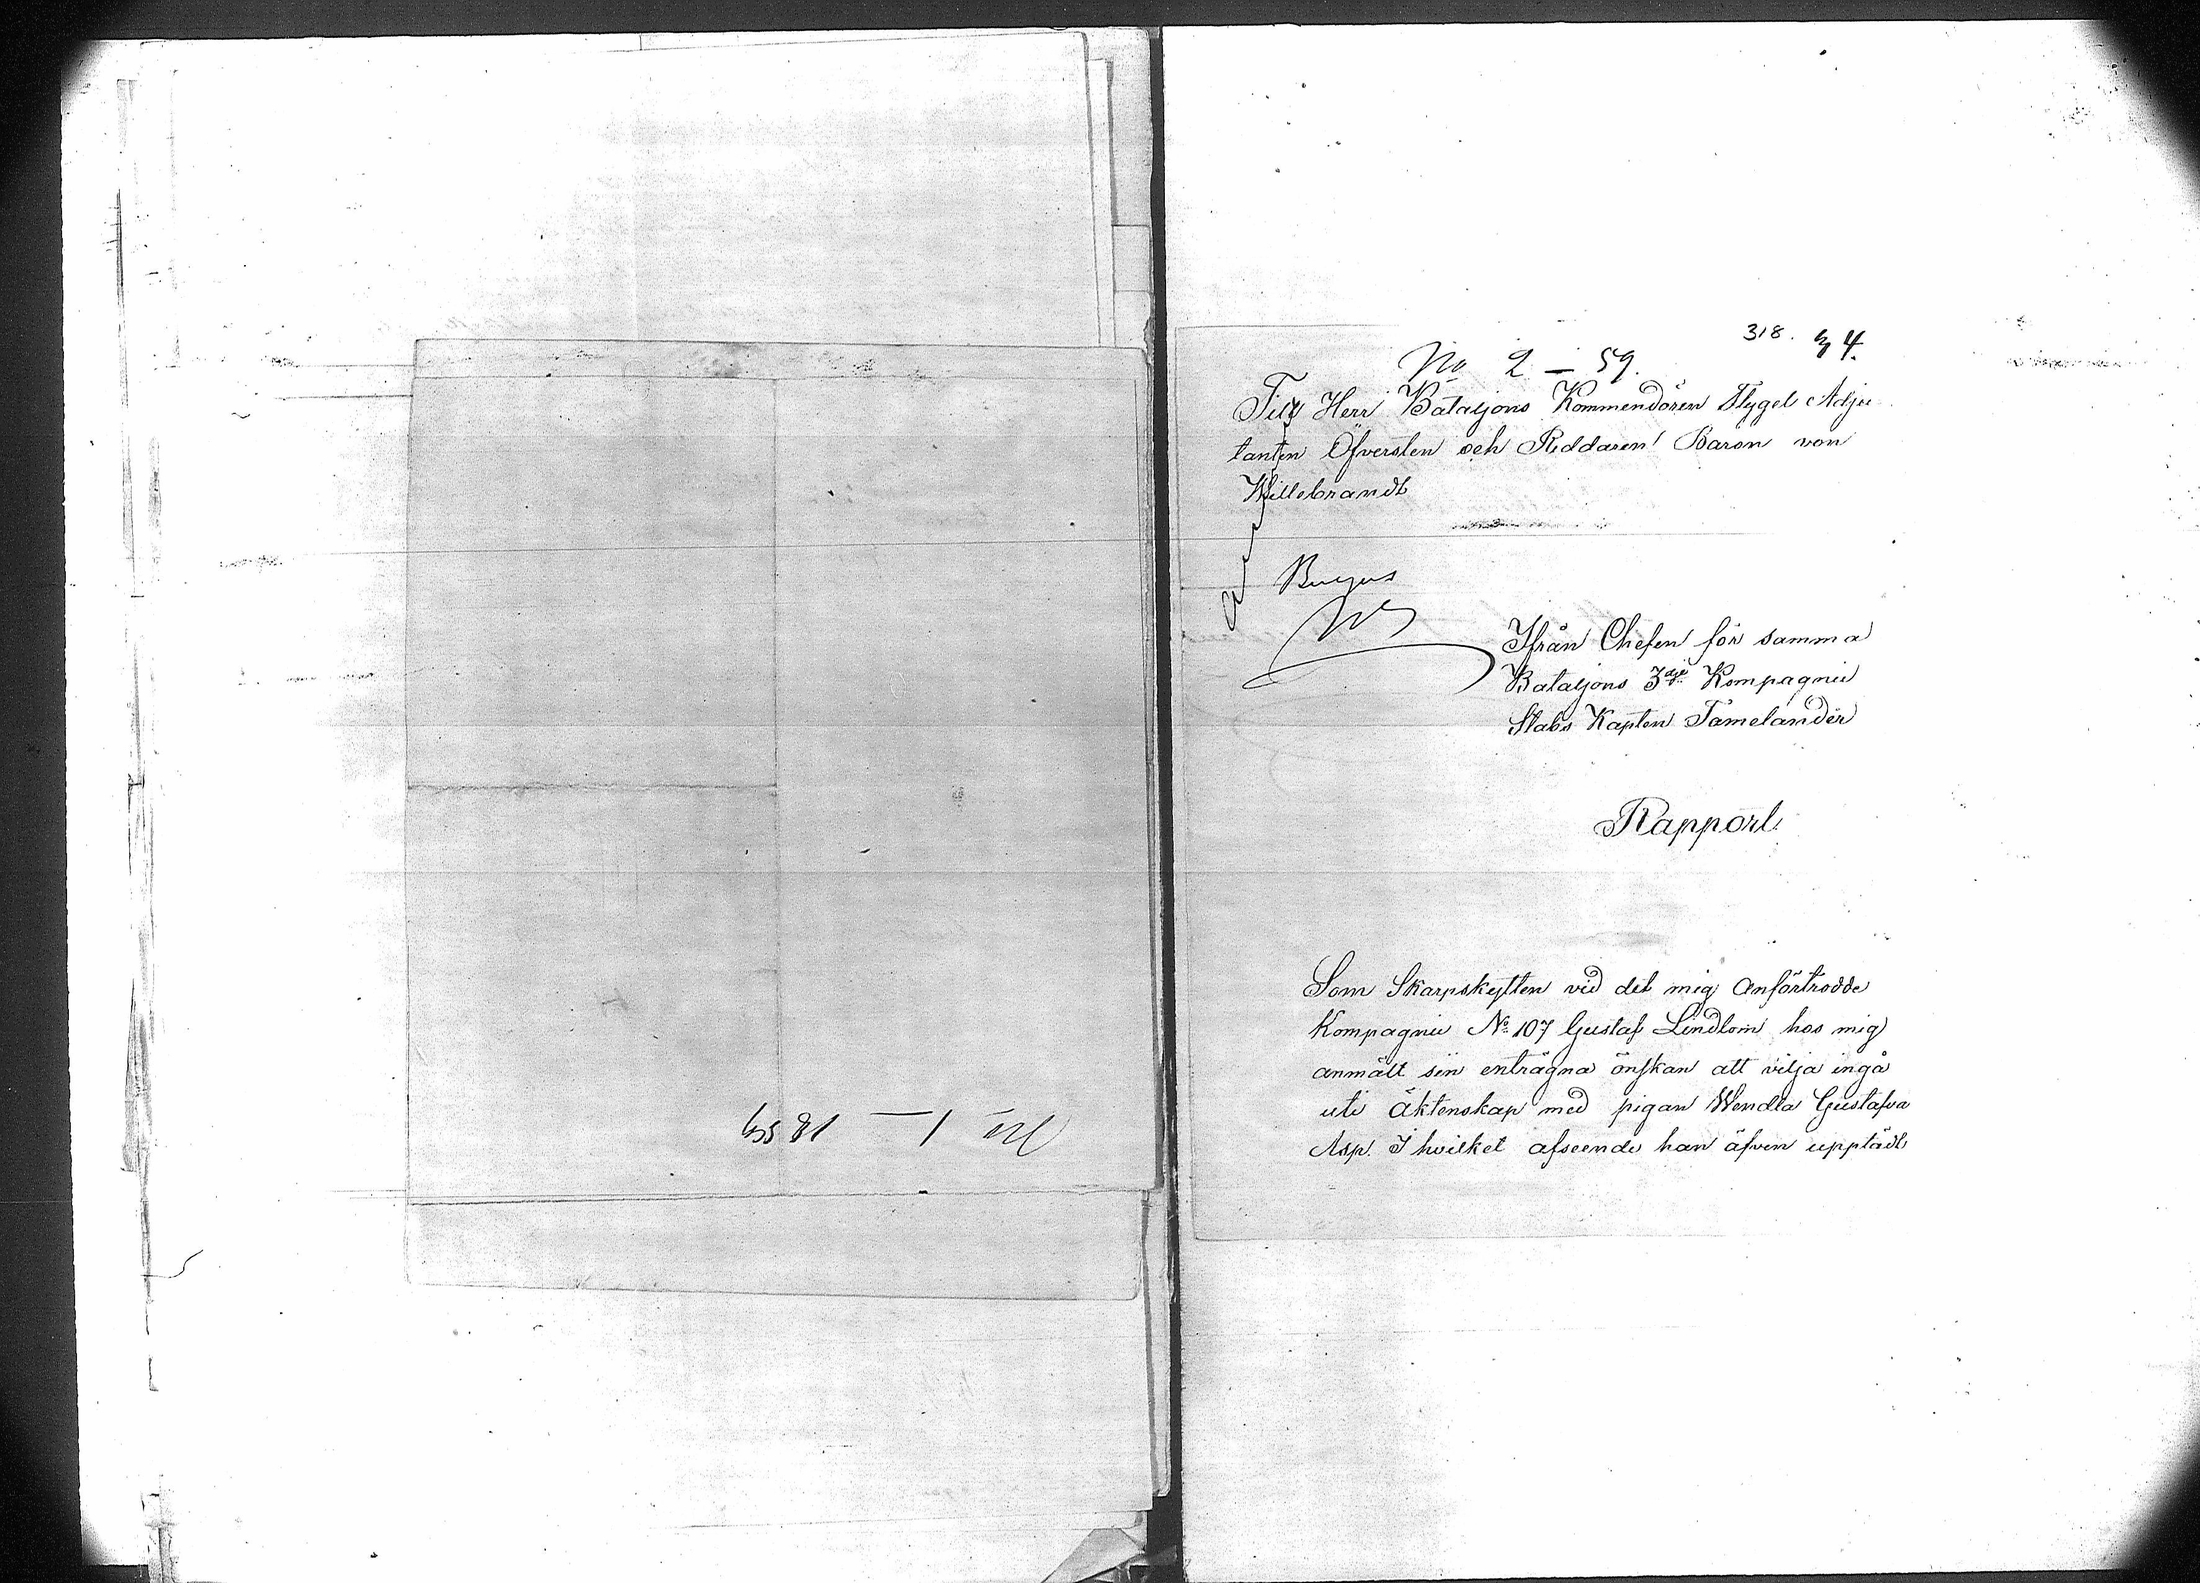 No 1 — 1859
318. 4.
No 2 — 59.
Till Herr Bataljons Kommendören Flygel Adju
tanten Öfversten och Riddaren Baron von
Willebrandt
Ifrån Chefen för samma
Bataljons 3dje Kompagnie
Stabs Kapten Tamelander
Rapport.
Som Skarpskytten vid det mig anförtrodde
Kompagnie No 107 Gustaf Lindlom hos mig
anmält sin enträgna önskan att vilja ingå
uti äktenskap med pigan Wendla Gustafva
Asp. I hvilket afseende han äfven upptädt